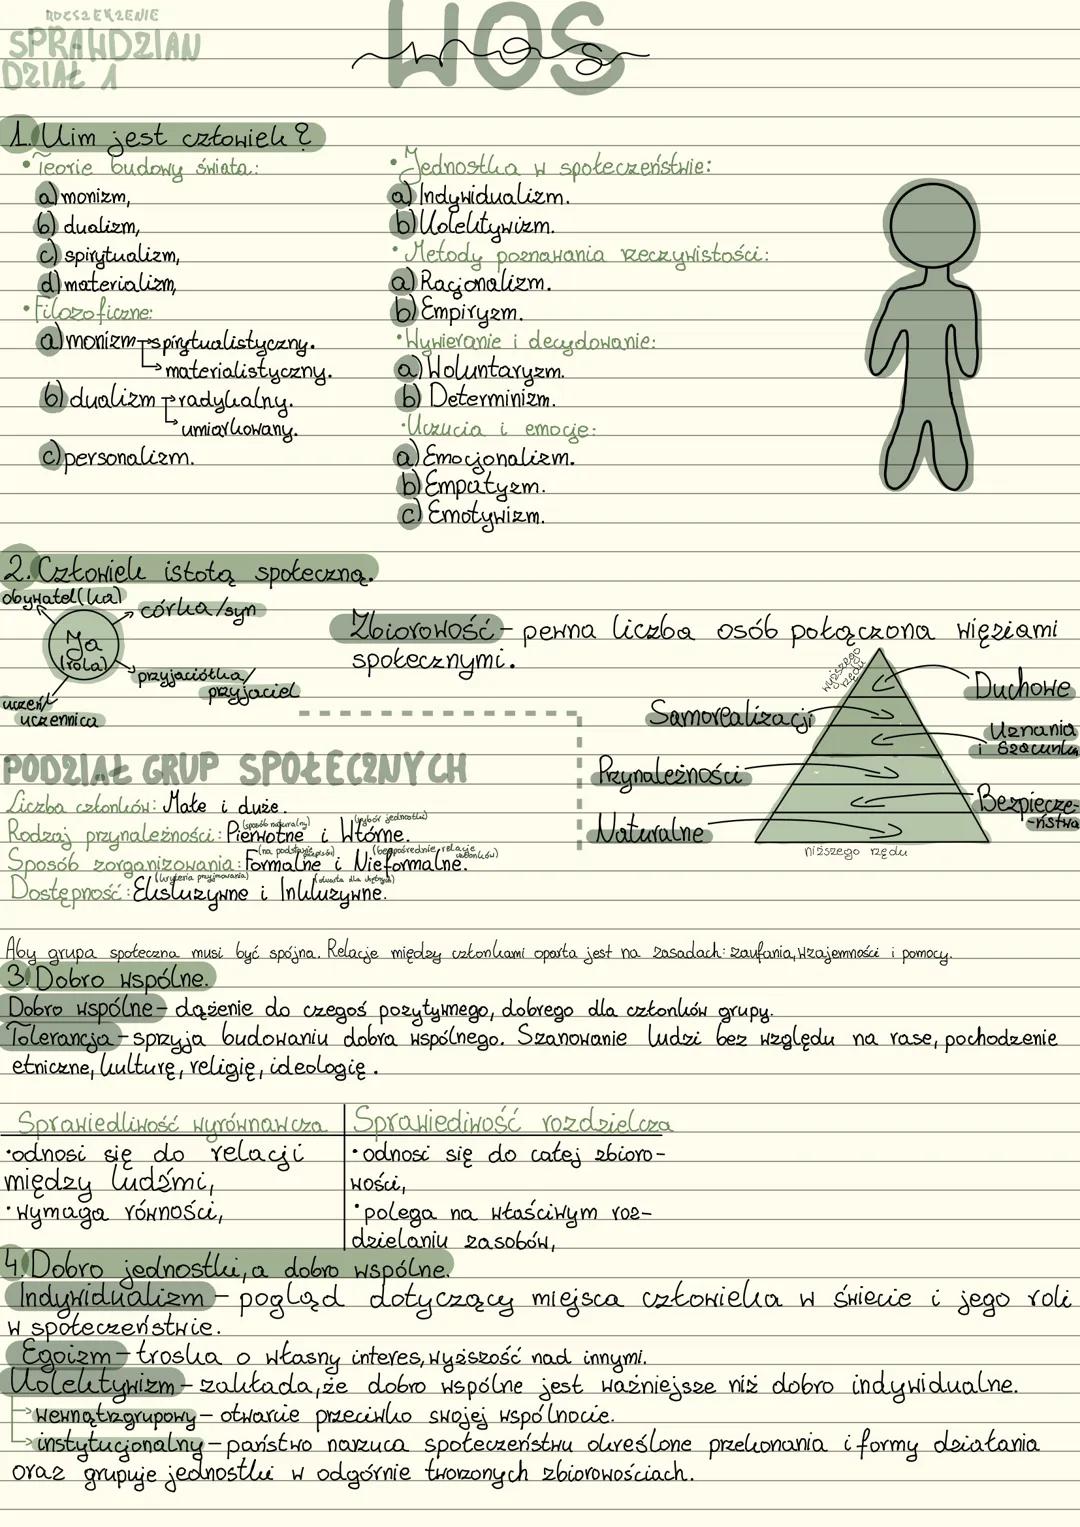 ROZSZERZENIE
SPRAWDZIAN
DZIAŁ 1
WOS
wos
1. Kim jest człowiek?
• Teorie budowy świata:
a) monizm,
b) dualizm,
c) spirytualizm,
d) materializm,
• Filozoficzne:
a) monizm → spirytualistyczny.
→ materialistyczny.
b) dualizm → radykalny.
→ umiarkowany.
c) personalizm.
• Jednostka w społeczeństwie:
a) Indywidualizm.
b) Kolektywizm.
• Metody poznawania rzeczywistości:
a) Racjonalizm.
b) Empiryzm.
• Wywieranie i decydowanie:
a) Woluntaryzm.
b) Determinizm.
• Uczucia i emocje:
a) Emocjonalizm.
b) Empatyzm.
c) Emotywizm.
2. Człowiek istotą społeczną.
obywatel(ka)
córka/syn
Ja
(rola)
przyjaciółka/
przyjaciel
uczeń/
uczennica
Zbiorowość - pewna liczba osób połączona więziami
społecznymi.
wyższego
rzędu
Duchowe
Samorealizacji
Uznania
i szacunku
Przynależności
Bezpiecze-
-ństwa
Naturalne
niższego rzędu
PODZIAŁ GRUP SPOŁECZNYCH
Liczba członków: Małe i duże.
(sposób naturalny) (wybór jednostki)
Rodzaj przynależności: Pierwotne i Wtórne.
(na podstawie przepisów) (bezpośrednie relacje członków)
Sposób zorganizowania: Formalne i Nieformalne.
(kryteria przyjmowania) (otwarta dla chętnych)
Dostępność: Ekskluzywne i Inkluzywne.
Aby grupa społeczna musi być spójna. Relacje między członkami oparta jest na zasadach: zaufania, wzajemności i pomocy.
3. Dobro wspólne.
Dobro wspólne - dążenie do czegoś pozytywnego, dobrego dla członków grupy.
Tolerancja - sprzyja budowaniu dobra wspólnego. Szanowanie ludzi bez względu na rase, pochodzenie
etniczne, kulturę, religię, ideologię.
Sprawiedliwość wyrównawcza
• odnosi się do relacji
między ludźmi,
• wymaga równości,
Sprawiediwość rozdzielcza
• odnosi się do całej zbioro-
wości,
• polega na właściwym roz-
dzielaniu zasobów,
4. Dobro jednostki, a dobro wspólne.
Indywidualizm - pogląd dotyczący miejsca człowieka w świecie i jego roli
w społeczeństwie.
Egoizm - troska o własny interes, wyższość nad innymi.
Kolektywizm - zakłada, że dobro wspólne jest ważniejsze niż dobro indywidualne.
→ wewnątrzgrupowy - otwarcie przeciwko swojej wspólnocie.
→ instytucjonalny - państwo narzuca społeczeństwu określone przekonania i formy działania
oraz grupuje jednostki w odgórnie tworzonych zbiorowościach.